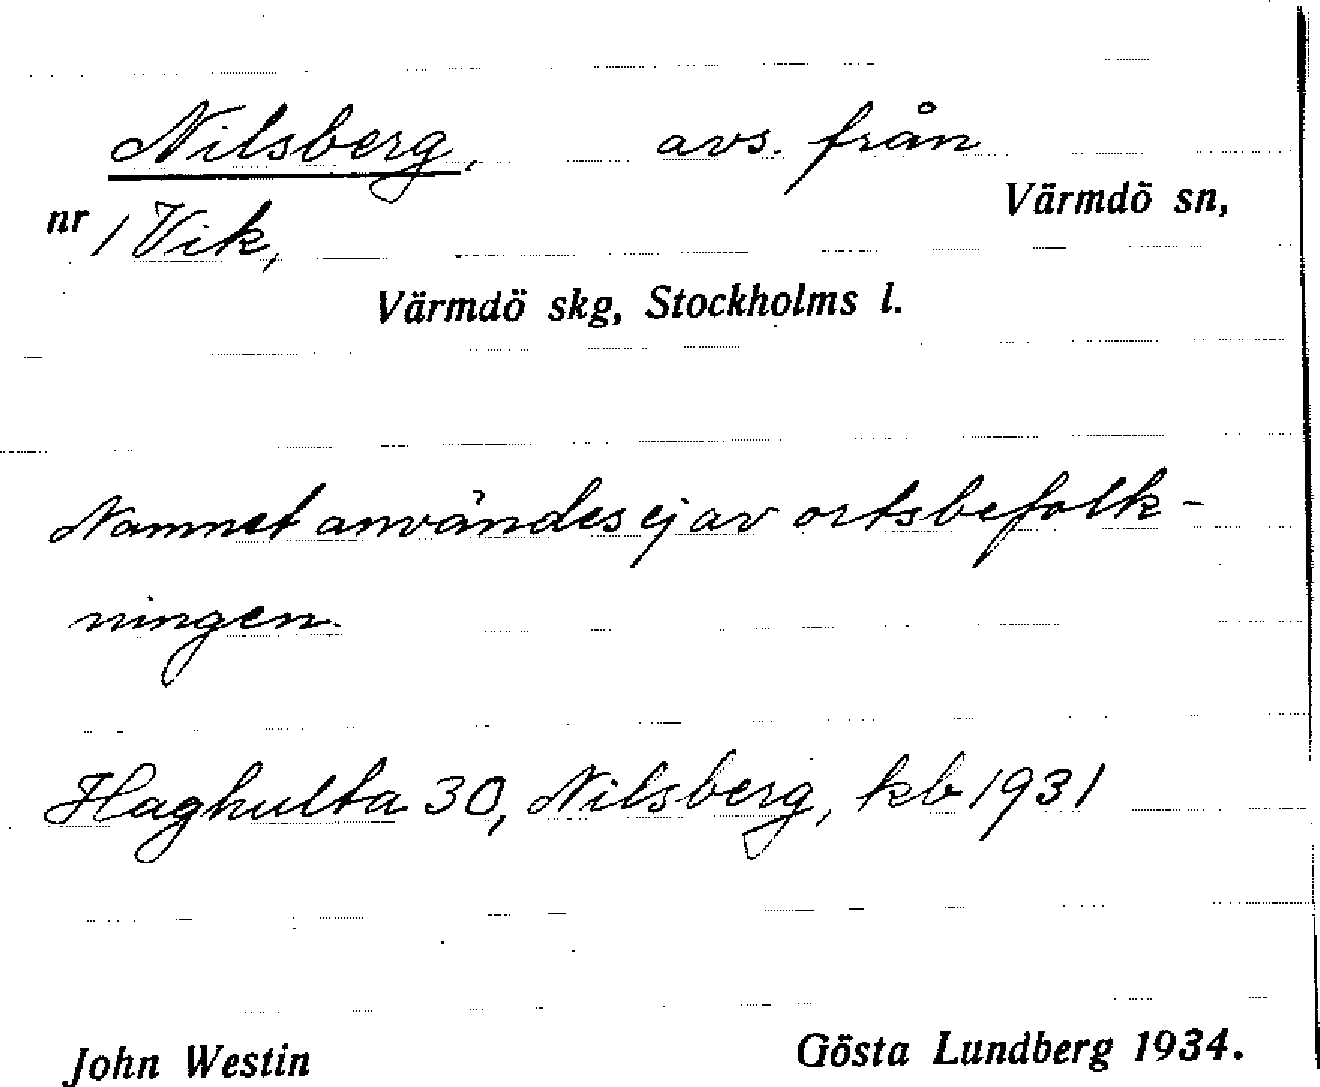 Nilsberg, avs. från
Värmdö sn,
nr 1 Vik,
Värmdö skg, Stockholms l.
Namnet användes ej av ortsbefolk-
ningen.
Haghulta 30, Nilsberg, kb 1931
John Westin Gösta Lundberg 1934.